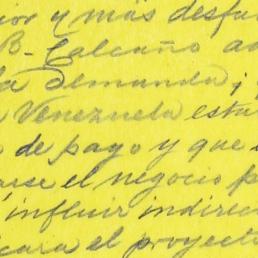 ior y más desfa
B- Calcaño a
la demanda; y
Venezuela esta
de pago y que
arse el negocio p
influir indirec
cara el proyect